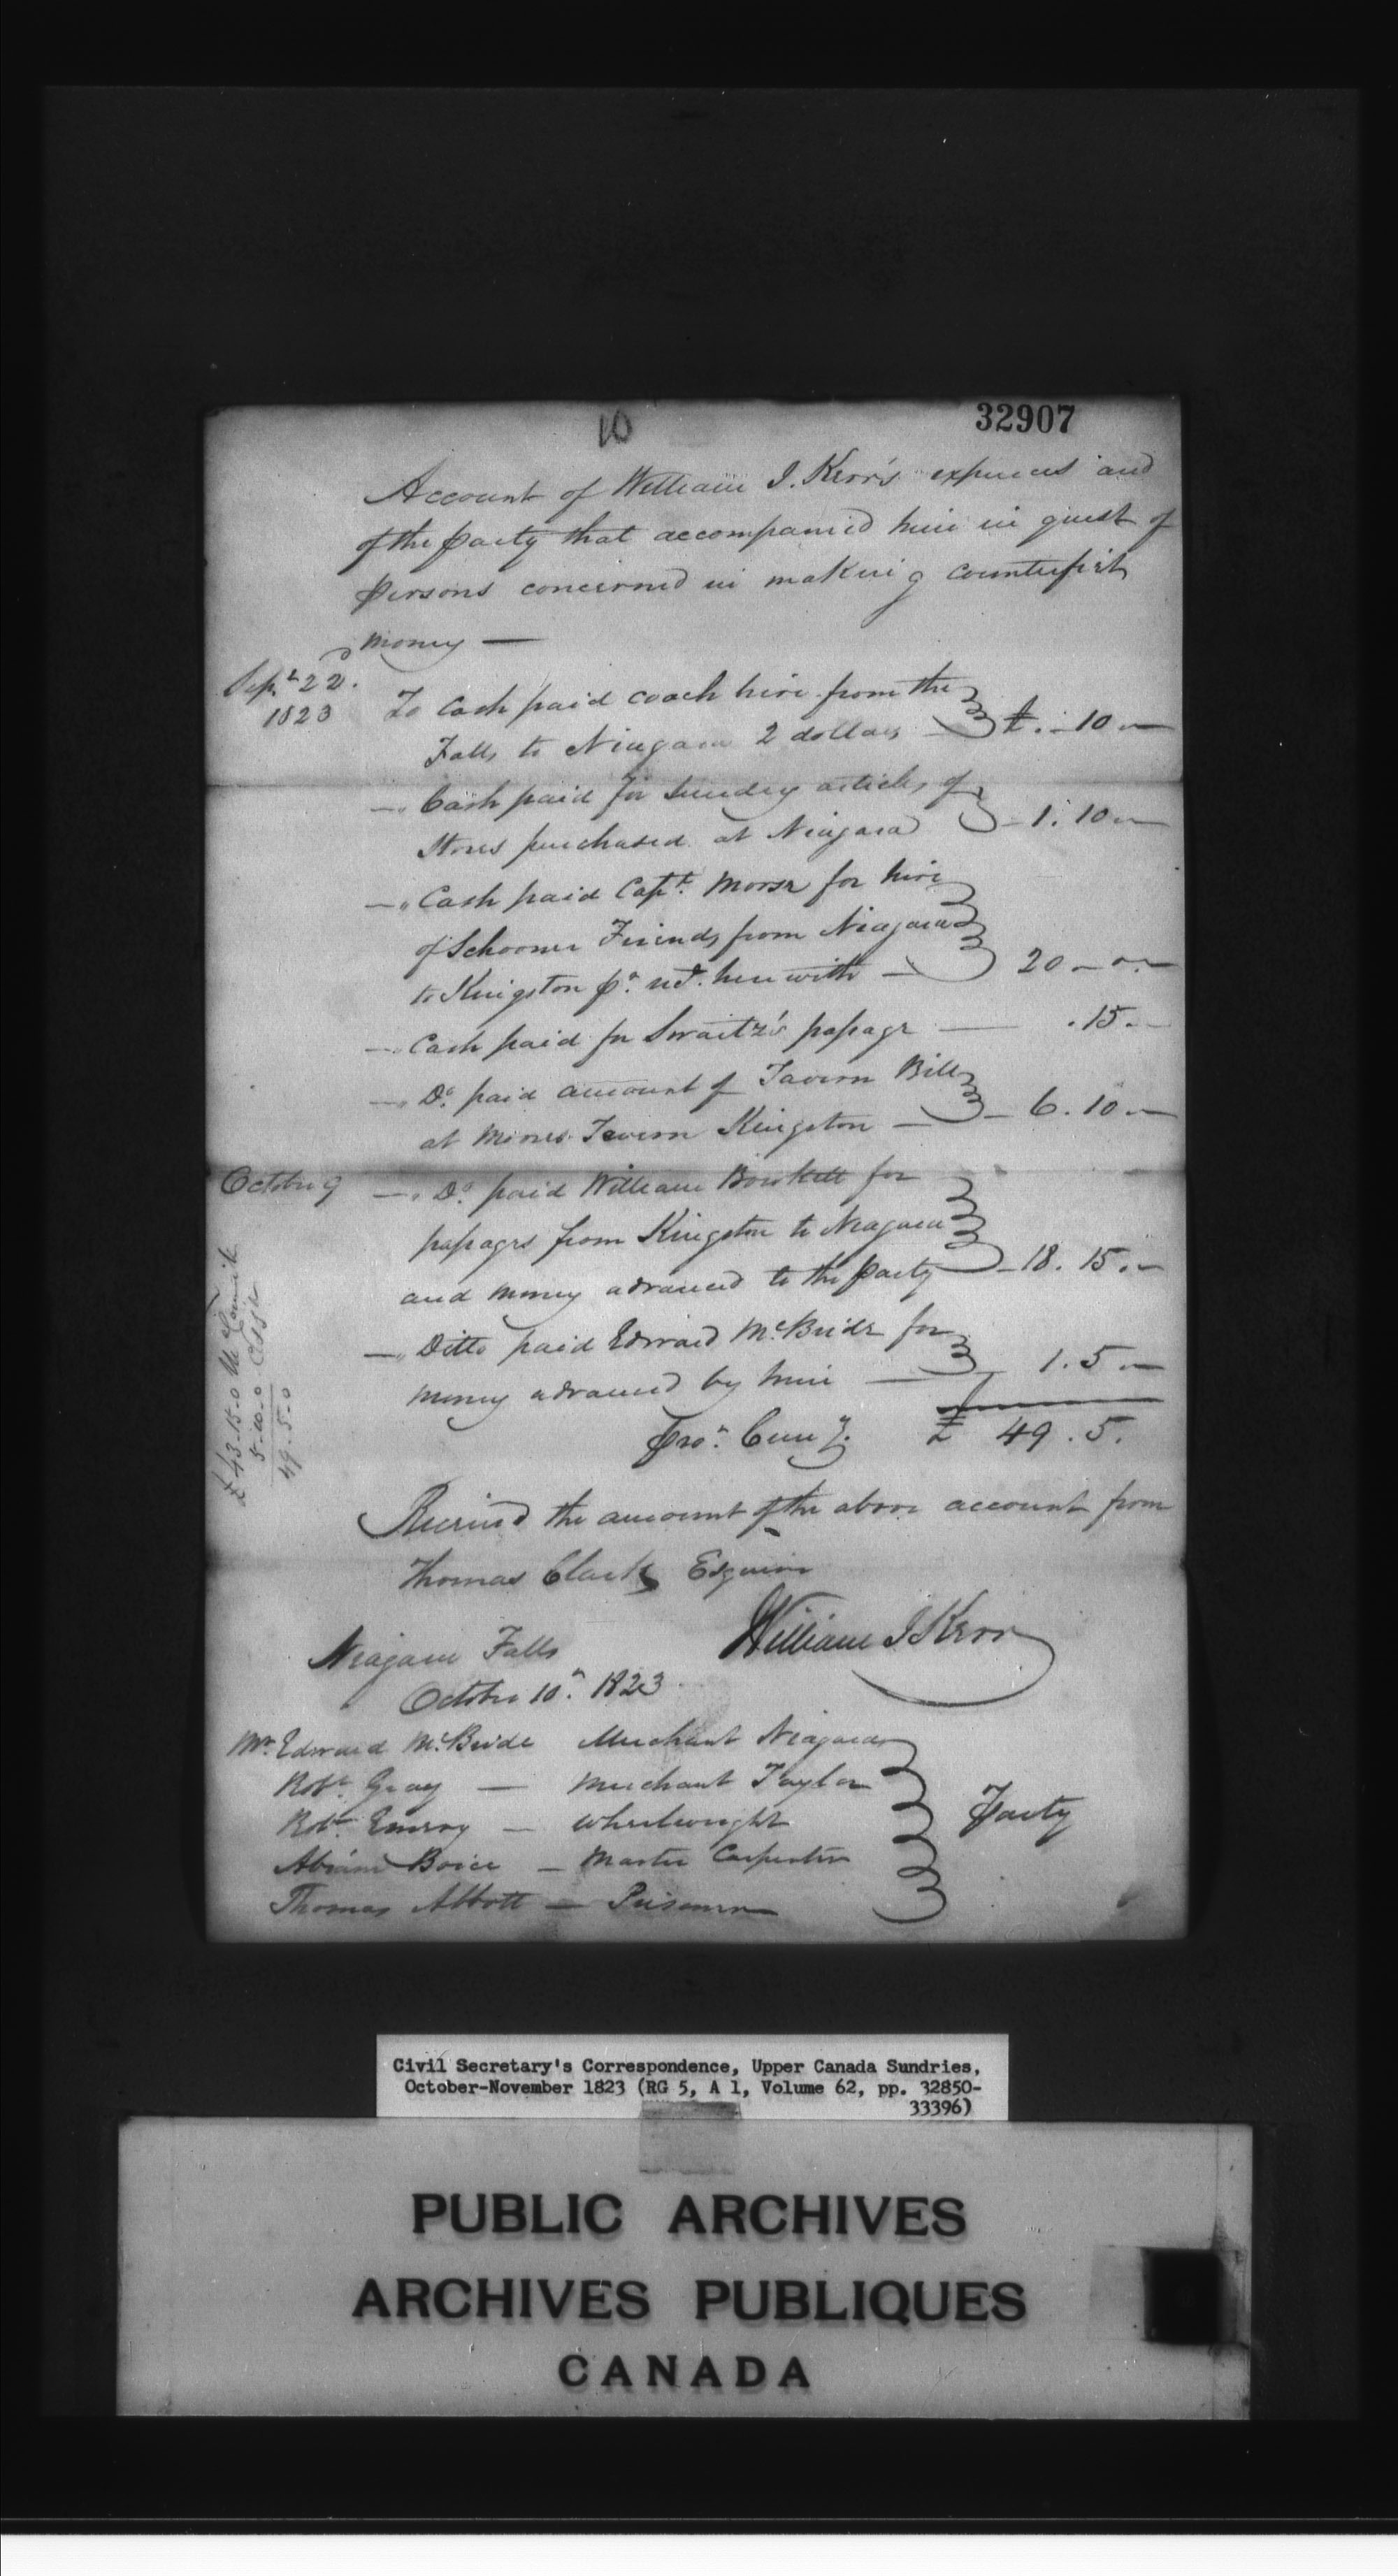 10
32907
Account of William I. Kerr's expences and
of the party that accompanied him in quest of
persons concerned in making counterfeit
money —
Sept 22d.
1823
To Cash paid coach hire from the
Falls to Niagara 2 dollars — £. . 10 . —
—" Cash paid for sundry articles of
Stores purchased at Niagara — 1. 10 . —
—" Cash paid Capt. Morse for hire
of Schooner Friends from Niagara
to Kingston pr. herewith — 20 — " . —
—" Cash paid for Swaitz's passage — . 15 . —
—" Do. paid amount of Tavern Bill
at Tavern Kingston — 6 . 10 . —
October 9 —" Do. paid William Bowkett for
passages from Kingston to Niagara
and money advanced to the party — 18 . 15 . —
—" Ditto paid Edward McBride for
money advanced by him — 1 . 5 . —
Pro. Curry. £ 49 . 5 .
£43-15-0
5-10-0
49-5-0
Received the amount of the above account from
Thomas Clark Esquire
William I Kerr
Niagara Falls
October 10th. 1823
Mr. Edward McBride Merchant Niagara
Robt. Gray — Merchant Taylor
Robt. Emery — Wheelwright
Abram Boice — Master Carpenter
Thomas Abbott — Prisoner
Party
Civil Secretary's Correspondence, Upper Canada Sundries,
October-November 1823 (RG 5, A 1, Volume 62, pp. 32850-
33396)
PUBLIC ARCHIVES
ARCHIVES PUBLIQUES
CANADA